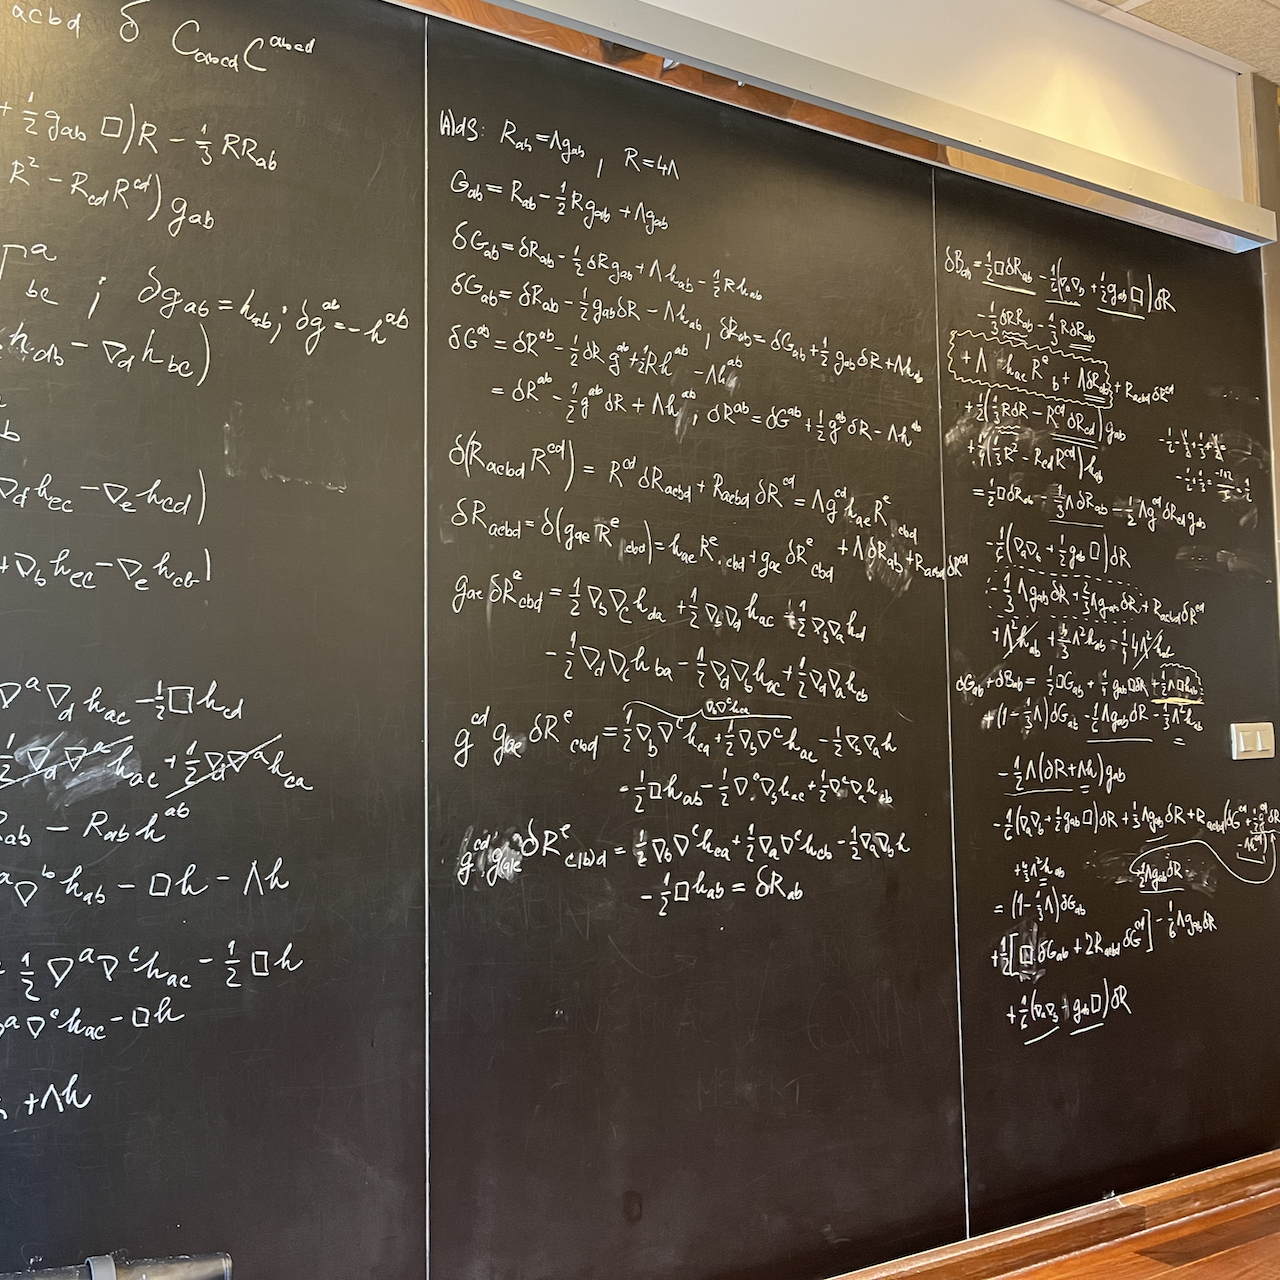 acbd δ C_{abcd}C^{abcd}
+ 1/2 g_{ab} □)R - 1/3 RR_{ab}
R² - R_{cd}R^{cd}) g_{ab}
Γ^a_{bc} ; δg_{ab} = h_{ab}; δg^{ab} = -h^{ab}
h_{db} - ∇_d h_{bc})
b
∇_d h_{ec} - ∇_e h_{cd})
+ ∇_b h_{ec} - ∇_e h_{cb})
∇^a ∇_d h_{ac} - 1/2 □ h_{cd}
1/2 ∇_d ∇^a h_{ac} + 1/2 ∇_d ∇^a h_{ca}
R_{ab} - R_{ab} h^{ab}
∇^a ∇^b h_{ab} - □h - Λh
1/2 ∇^a ∇^c h_{ac} - 1/2 □h
∇^a ∇^c h_{ac} - □h
+ Λh
(A)dS: R_{ab} = Λg_{ab} , R = 4Λ
G_{ab} = R_{ab} - 1/2 R g_{ab} + Λg_{ab}
δG_{ab} = δR_{ab} - 1/2 δR g_{ab} + Λ h_{ab} - 1/2 R h_{ab}
δG_{ab} = δR_{ab} - 1/2 g_{ab} δR - Λ h_{ab} , δR_{ab} = δG_{ab} + 1/2 g_{ab} δR + Λ h_{ab}
δG^{ab} = δR^{ab} - 1/2 δR g^{ab} + 1/2 R h^{ab} - Λh^{ab}
= δR^{ab} - 1/2 g^{ab} δR + Λh^{ab} , δR^{ab} = δG^{ab} + 1/2 g^{ab} δR - Λh^{ab}
δ(R_{acbd} R^{cd}) = R^{cd} δR_{acbd} + R_{acbd} δR^{cd} = Λg^{cd} h_{ae} R^e_{cbd}
+ Λ δR_{ab} + R_{acbd} δR^{cd}
δR_{acbd} = δ(g_{ae} R^e_{cbd}) = h_{ae} R^e_{cbd} + g_{ae} δR^e_{cbd}
g_{ae} δR^e_{cbd} = 1/2 ∇_b ∇_c h_{da} + 1/2 ∇_b ∇_d h_{ac} - 1/2 ∇_b ∇_a h_{cd}
- 1/2 ∇_d ∇_c h_{ba} - 1/2 ∇_d ∇_b h_{ac} + 1/2 ∇_d ∇_a h_{cb}
∇_b ∇^c h_{ca}
g^{cd} g_{ae} δR^e_{cbd} = 1/2 ∇_b ∇^c h_{ca} + 1/2 ∇_b ∇^c h_{ac} - 1/2 ∇_b ∇_a h
- 1/2 □ h_{ab} - 1/2 ∇^c ∇_b h_{ac} + 1/2 ∇^c ∇_a h_{cb}
g^{cd} g_{ae} δR^e_{c(b)d} = 1/2 ∇_b ∇^c h_{ca} + 1/2 ∇_a ∇^c h_{cb} - 1/2 ∇_a ∇_b h
- 1/2 □ h_{ab} = δR_{ab}
δB_{ab} = 1/2 □ δR_{ab} - 1/6 (∇_a ∇_b + 1/2 g_{ab} □) δR
- 1/3 δR R_{ab} - 1/3 R δR_{ab}
+ Λ h_{ae} R^e_b + Λ δR_{ab} + R_{acbd} δR^{cd}
+ 1/2 (1/3 R δR - R^{cd} δR_{cd}) g_{ab}
+ 1/4 (1/3 R² - R_{cd} R^{cd}) h_{ab}
= 1/2 □ δR_{ab} - 1/3 Λ δR_{ab} - 1/2 Λ g^{cd} δR_{cd} g_{ab}
- 1/6 (∇_a ∇_b + 1/2 g_{ab} □) δR
- 1/3 Λ g_{ab} δR + 2/3 Λ g_{ab} δR + R_{acbd} δR^{cd}
δG_{ab} + δB_{ab} = 1/2 □ G_{ab} + 1/4 g_{ab} □ δR + 1/2 Λ □ h_{ab}
+ (1 - 1/3 Λ) δG_{ab} - 1/2 Λ g_{ab} δR - 1/3 Λ² h_{ab}
- 1/2 Λ (δR + Λh) g_{ab}
- 1/6 (∇_a ∇_b + 1/2 g_{ab} □) δR + 1/3 Λg_{ab} δR + R_{acbd} (δG^{cd} + 1/2 g^{cd} δR
- Λh^{cd})
= (1 - 1/3 Λ) δG_{ab}
+ 1/2 [□ δG_{ab} + 2R_{acbd} δG^{cd}] - 1/6 Λ g_{ab} δR
+ 1/6 (∇_a ∇_b + g_{ab} □) δR